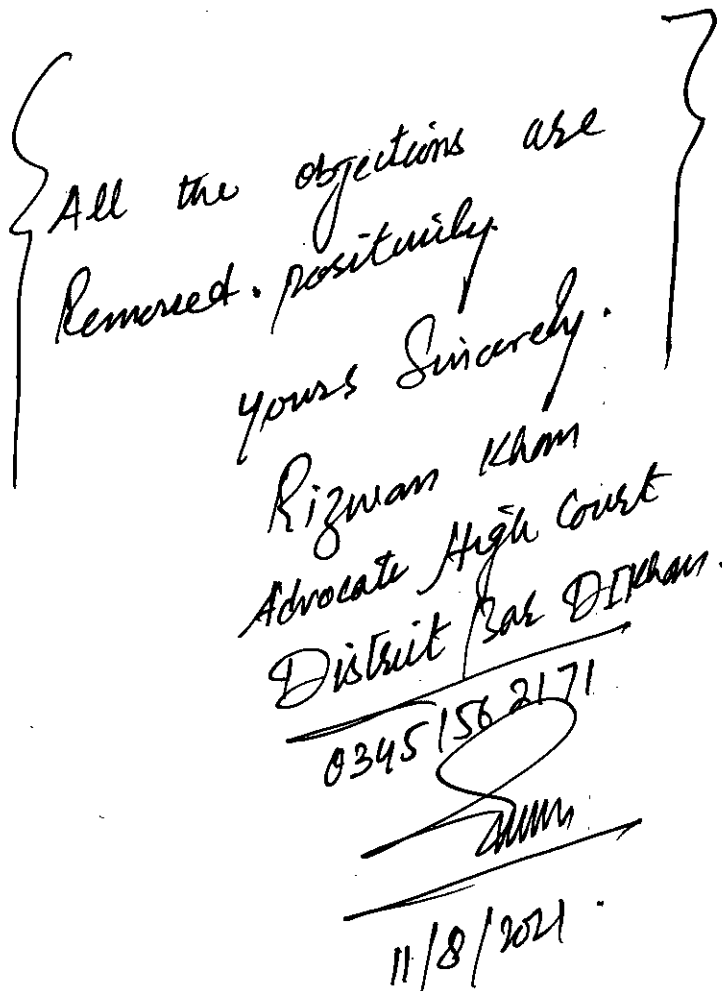 All the objections are
Removed. positively.
Yours Sincerely.
Rizwan Khan
Advocate High Court
District Bar DIKhan.
03451562171
11/8/2021.